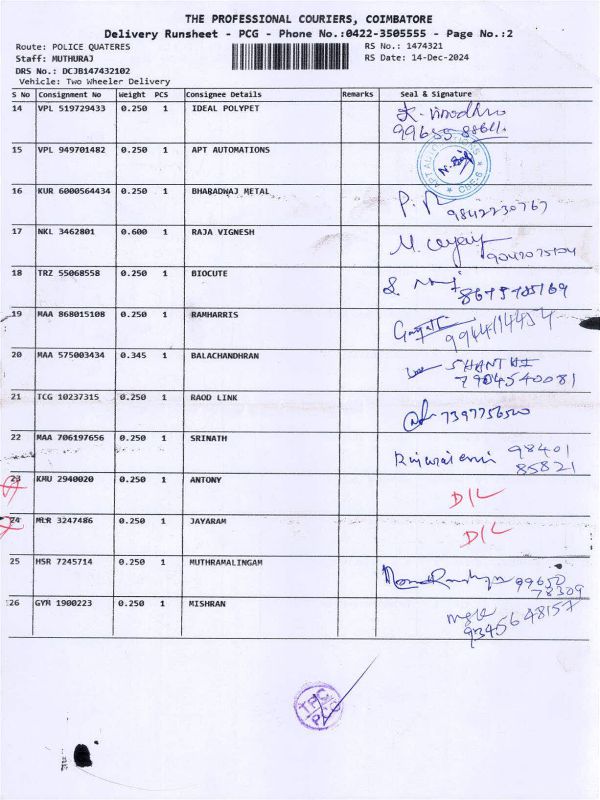 THE PROFESSIONAL COURIERS, COIMBATORE
Delivery Runsheet - PCG - Phone No.:0422-3505555 - Page No.:2
Route: POLICE QUATERES RS No.: 1474321
Staff: MUTHURAJ RS Date: 14-Dec-2024
DRS No.: DCJB147432102
Vehicle: Two Wheeler Delivery
S No Consignment No Weight PCS Consignee Details Remarks Seal & Signature
14 VPL 519729433 0.250 1 IDEAL POLYPET
15 VPL 949701482 0.250 1 APT AUTOMATIONS
16 KUR 6000564434 0.250 1 BHARADHAJ METAL
9842230767
17 NKL 3462801 0.600 1 RAJA VIGNESH
18 TRZ 55068558 0.250 1 BIOCUTE
19 MAA 868015108 0.250 1 RAMHARRIS
9944114454
20 MAA 575003434 0.345 1 BALACHANDHRAN
SHANTHI
7904540081
21 TCG 10237315 0.250 1 RAOD LINK
7397756500
22 MAA 706197656 0.250 1 SRINATH
98401
85821
23 KMU 2940020 0.250 1 ANTONY D/L
24 MLR 3247486 0.250 1 JAYARAM D/L
25 HSR 7245714 0.250 1 MUTHRAMALINGAM
99650
78309
26 GYM 1900223 0.250 1 MISHRAN
9345648157
TPC